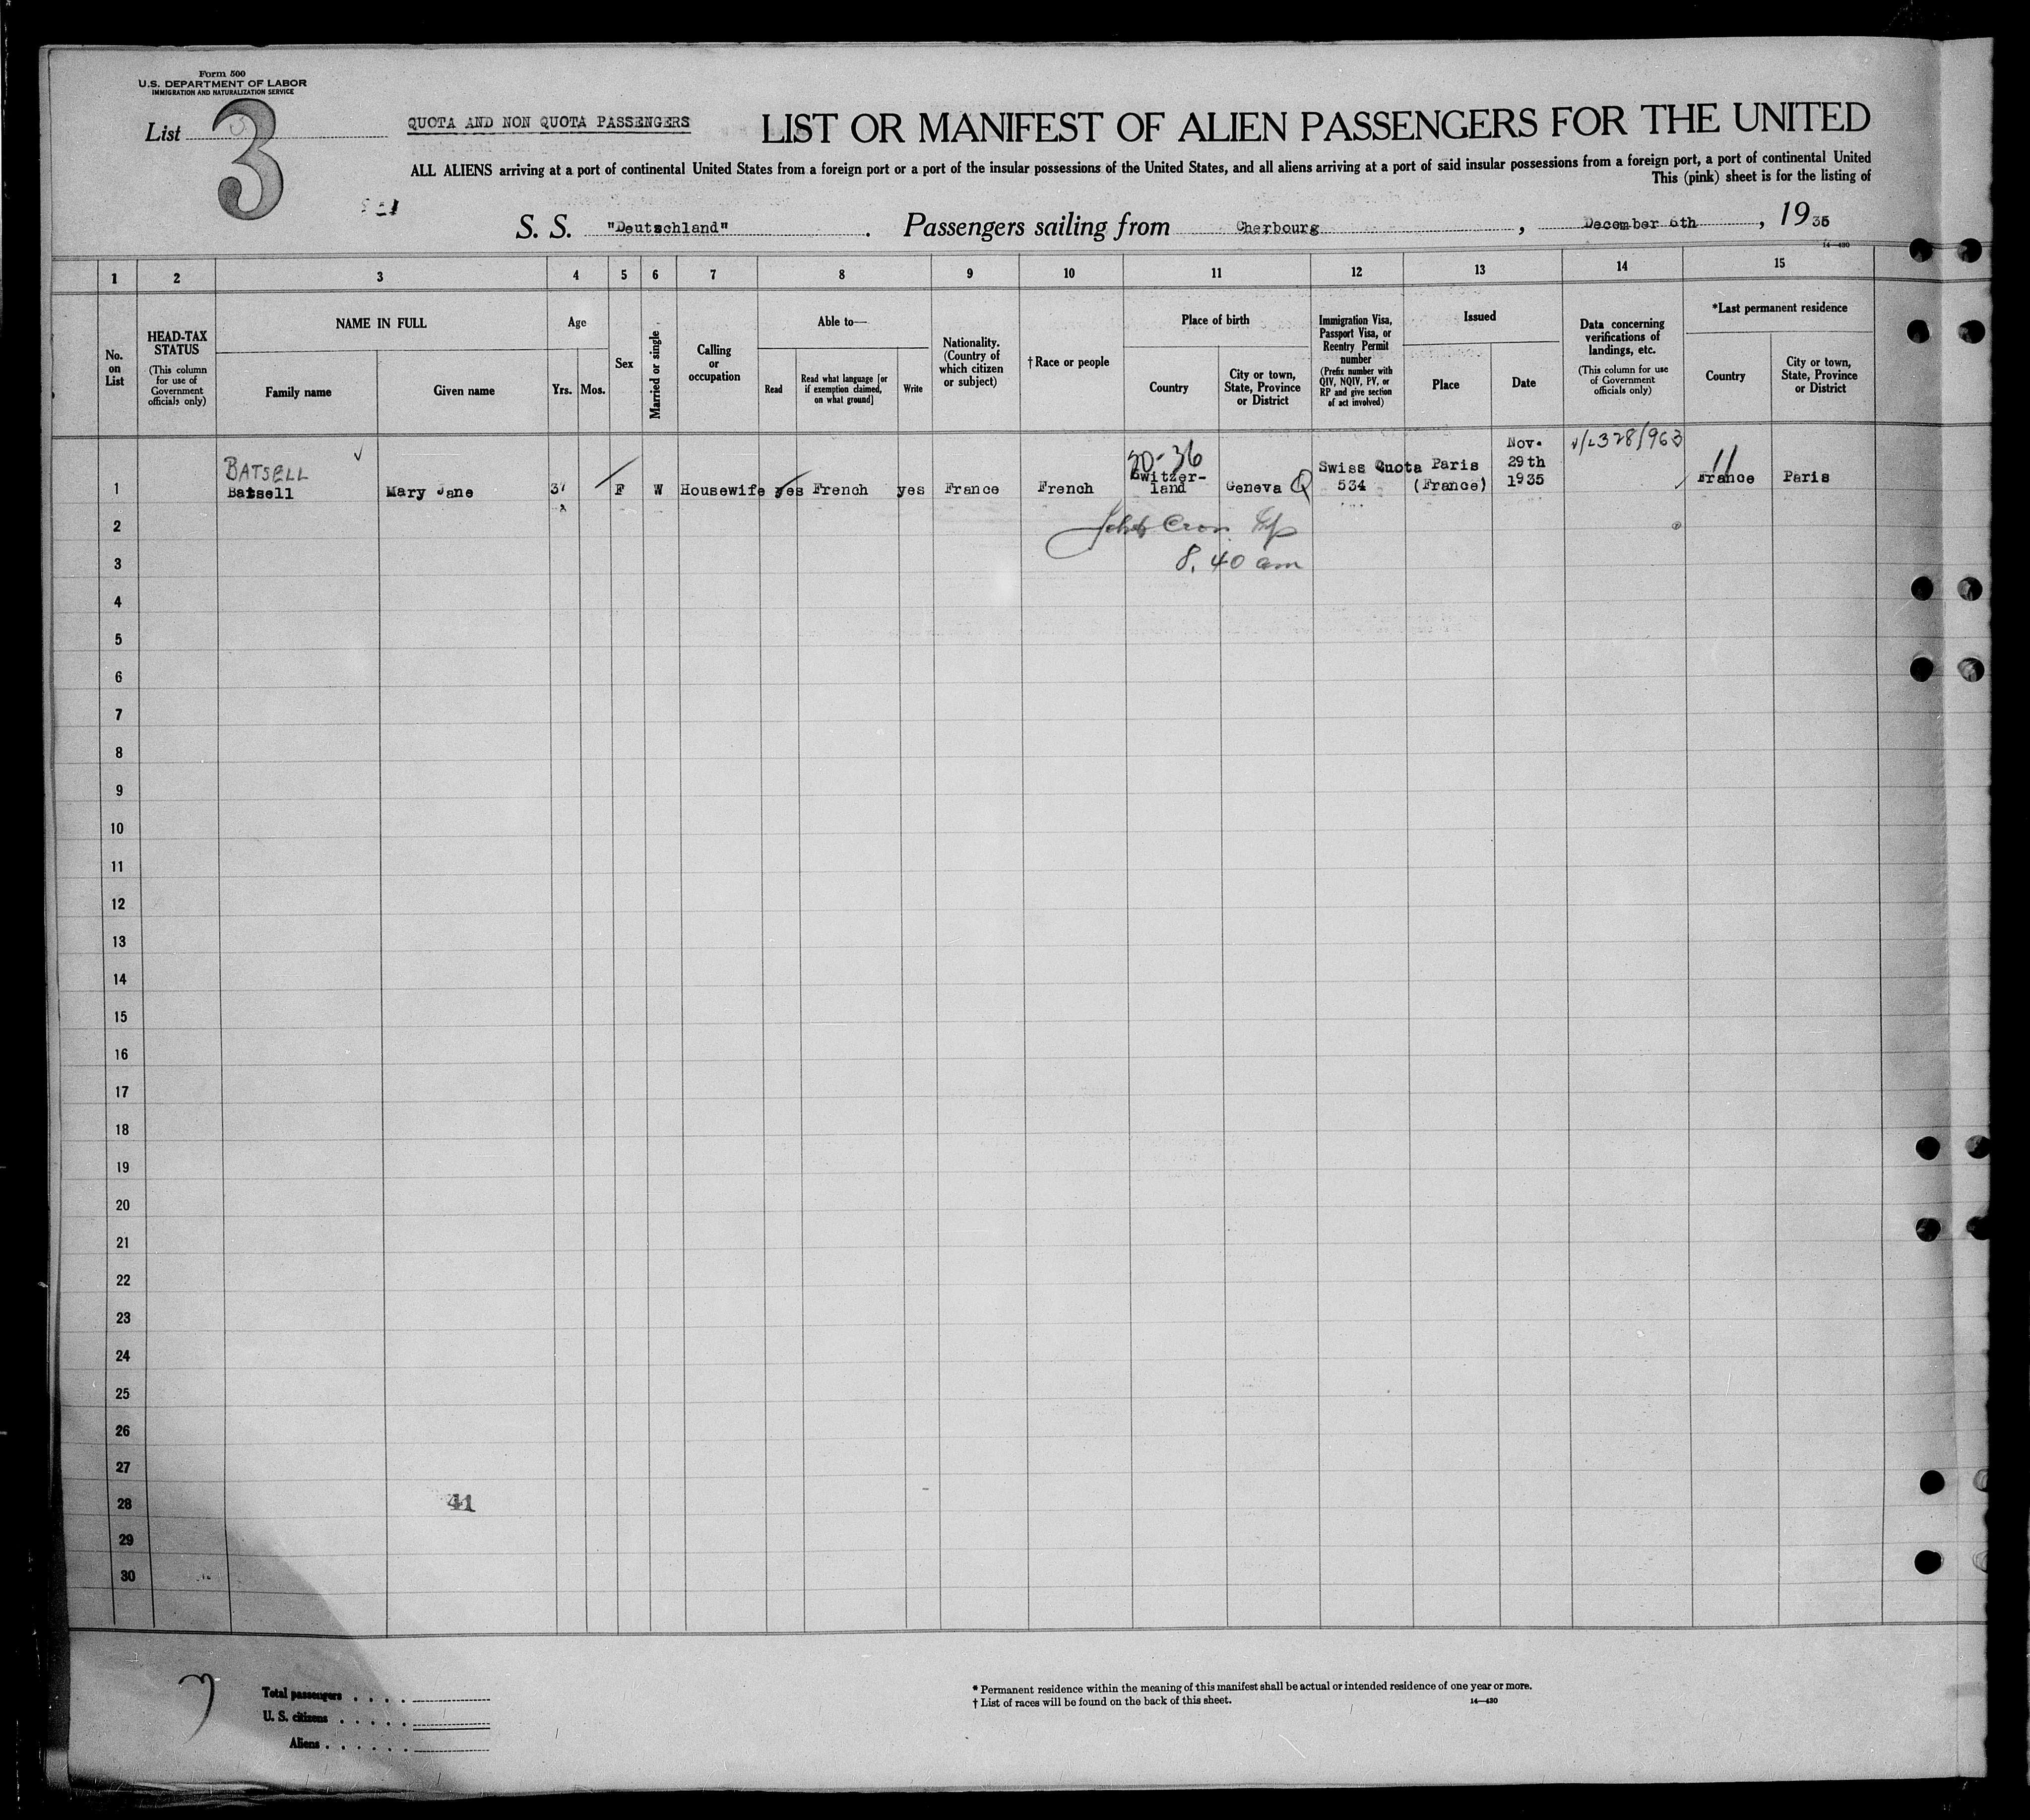 Form 500
U.S. DEPARTMENT OF LABOR
IMMIGRATION AND NATURALIZATION SERVICE
List 3
QUOTA AND NON QUOTA PASSENGERS
LIST OR MANIFEST OF ALIEN PASSENGERS FOR THE UNITED
ALL ALIENS arriving at a port of continental United States from a foreign port or a port of the insular possessions of the United States, and all aliens arriving at a port of said insular possessions from a foreign port, a port of continental United
This (pink) sheet is for the listing of
S. S. "Deutschland". Passengers sailing from Cherbourg, December 6th, 1935
14—430
1 2 3 4 5 6 7 8 9 10 11 12 13 14 15
No. on List
HEAD-TAX STATUS
(This column for use of Government officials only)
NAME IN FULL
Family name
Given name
Age
Yrs. Mos.
Sex
Married or single
Calling or occupation
Able to—
Read
Read what language [or if exemption claimed, on what ground]
Write
Nationality. (Country of which citizen or subject)
†Race or people
Place of birth
Country
City or town, State, Province or District
Immigration Visa, Passport Visa, or Reentry Permit number
(Prefix number with QIV, NQIV, PV, or RP and give section of act involved)
Issued
Place
Date
Data concerning verifications of landings, etc.
(This column for use of Government officials only)
*Last permanent residence
Country
City or town, State, Province or District
BATSELL
20-36
11
1 Batsell Mary Jane 37 F W Housewife yes French yes France French Switzer-land Geneva Q Swiss Quota 534 Paris (France) Nov. 29th 1935 France Paris
2
3 8.40 am
4
5
6
7
8
9
10
11
12
13
14
15
16
17
18
19
20
21
22
23
24
25
26
27
28 41
29
30
Total passengers . . . .
U. S. citizens . . . . .
Aliens . . . . . .
* Permanent residence within the meaning of this manifest shall be actual or intended residence of one year or more.
† List of races will be found on the back of this sheet.
14—430